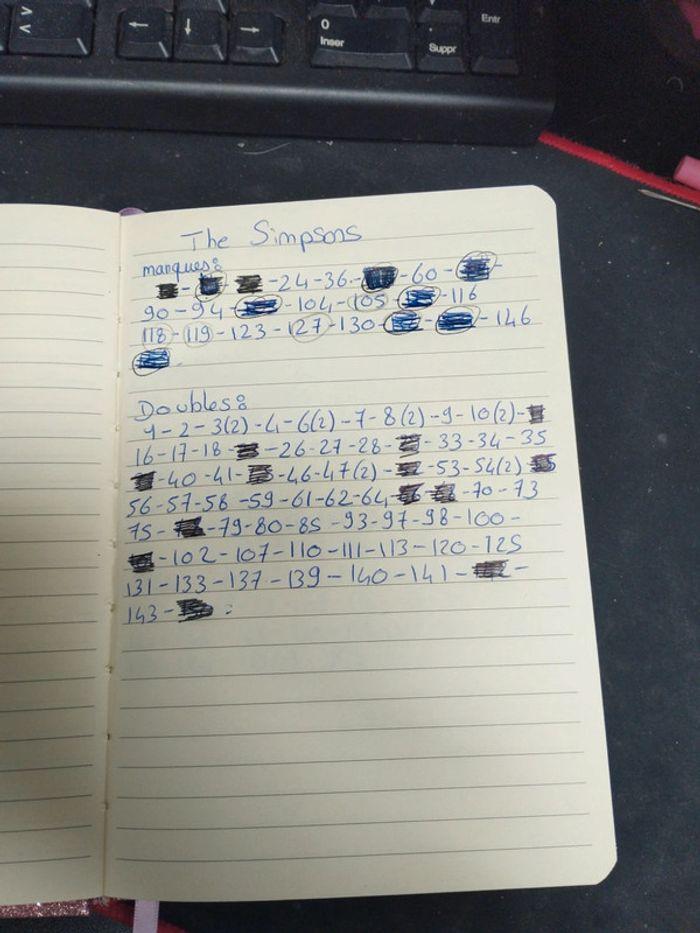 0
Inser
Suppr
Entr
The Simpsons
manques:
- - - 24 - 36 - - 60 - -
90 - 94 - - 104 - 105 - - 116
118 - 119 - 123 - 127 - 130 - - - 146
.
Doubles:
1 - 2 - 3(2) - 4 - 6(2) - 7 - 8(2) - 9 - 10(2) -
16 - 17 - 18 - - 26 - 27 - 28 - - 33 - 34 - 35
- 40 - 41 - - 46 - 47(2) - - 53 - 54(2)
56 - 57 - 58 - 59 - 61 - 62 - 64 - 70 - 73
75 - - 79 - 80 - 85 - 93 - 97 - 98 - 100 -
- 102 - 107 - 110 - 111 - 113 - 120 - 125
131 - 133 - 137 - 139 - 140 - 141 - -
143 -